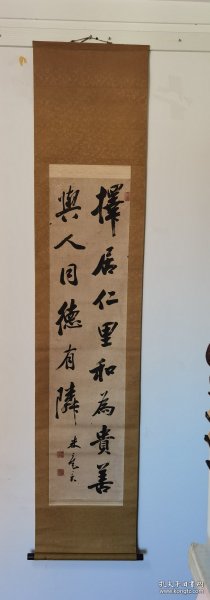 擇居仁里和為貴善
與人同德有隣
孔夫子旧书网